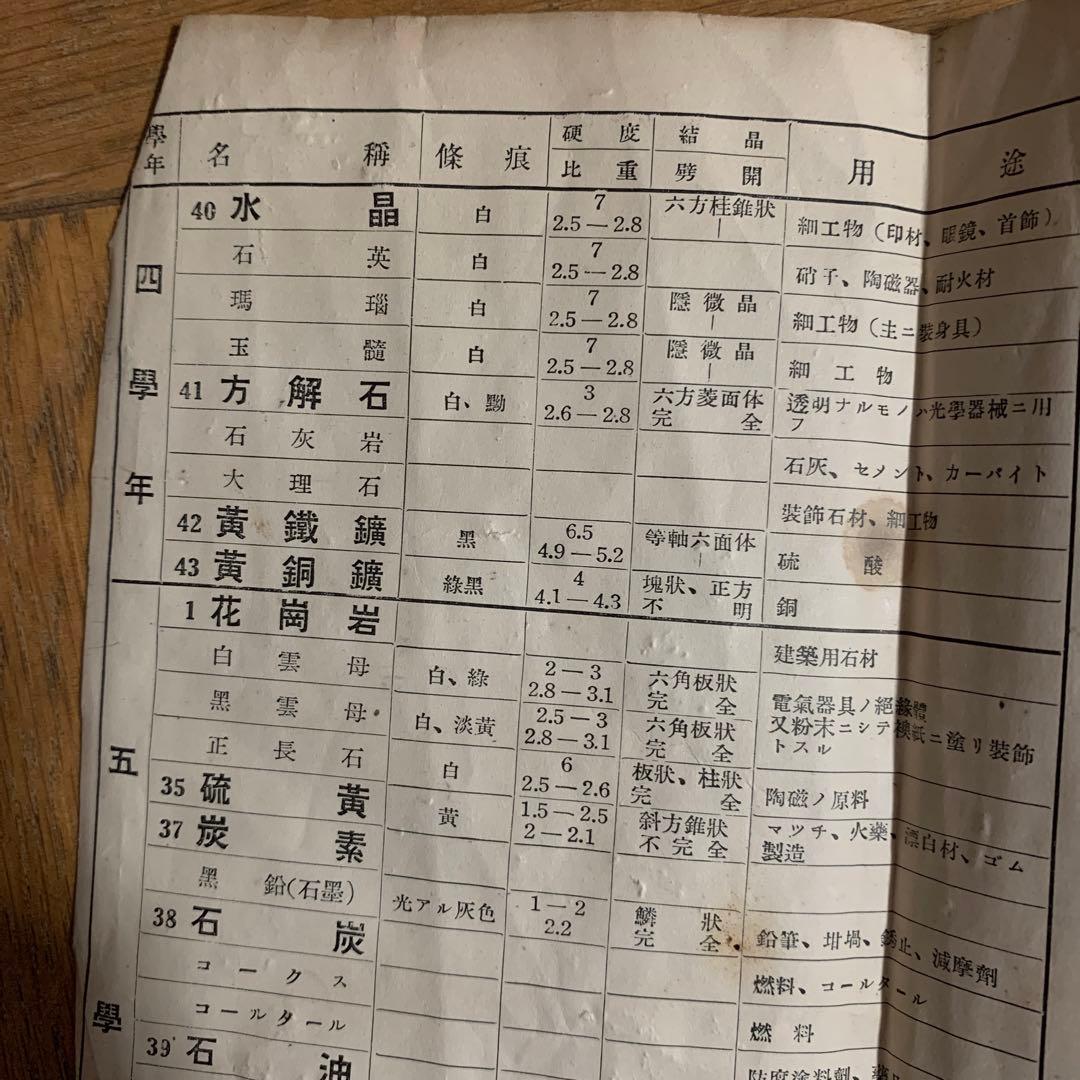 學年 名稱 條痕 硬度 比重 結晶 劈開 用途
四學年
40 水晶 白 7 2.5—2.8 六方柱錐狀 — 細工物(印材、眼鏡、首飾)
石英 白 7 2.5—2.8 硝子、陶磁器、耐火材
瑪瑙 白 7 2.5—2.8 隱微晶 — 細工物(主ニ裝身具)
玉髓 白 7 2.5—2.8 隱微晶 — 細工物
41 方解石 白、黝 3 2.6—2.8 六方菱面体 完全 透明ナルモノハ光學器械ニ用フ
石灰岩 石灰、セメント、カーバイト
大理石 裝飾石材、細工物
42 黃鐵鑛 黑 6.5 4.9—5.2 等軸六面体 — 硫酸
43 黃銅鑛 綠黑 4 4.1—4.3 塊狀、正方 不明 銅
五學
1 花崗岩 建築用石材
白雲母 白、綠 2—3 2.8—3.1 六角板狀 完全 電氣器具ノ絕緣體
黑雲母 白、淡黃 2.5—3 2.8—3.1 六角板狀 完全 又粉末ニシテ襖紙ニ塗リ裝飾トスル
正長石 白 6 2.5—2.6 板狀、柱狀 完全 陶磁ノ原料
35 硫黃 黃 1.5—2.5 2—2.1 斜方錐狀 不完全 マツチ、火藥、漂白材、ゴム製造
37 炭素
黑鉛(石墨) 光アル灰色 1—2 2.2 鱗狀 完全 鉛筆、坩堝、銹止、減摩劑
38 石炭 燃料、コールタール
コークス 燃料
コールタール 防腐塗料劑、藥
39 石油